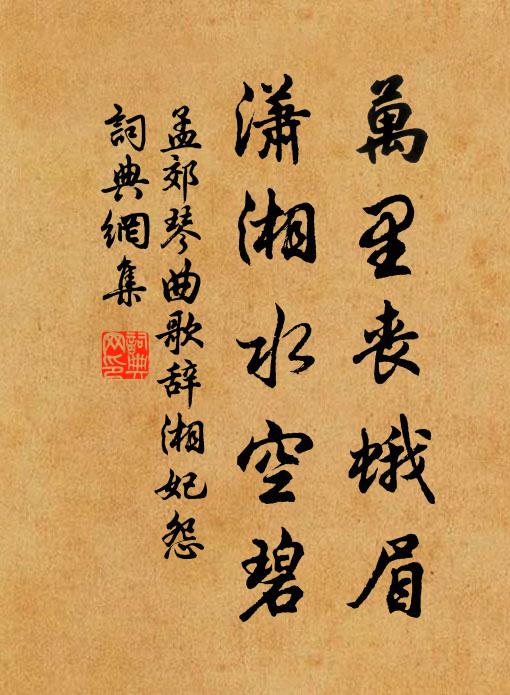 萬里喪蛾眉
瀟湘水空碧
孟郊琴曲歌辞湘妃怨
詞典網集
詞典
网印